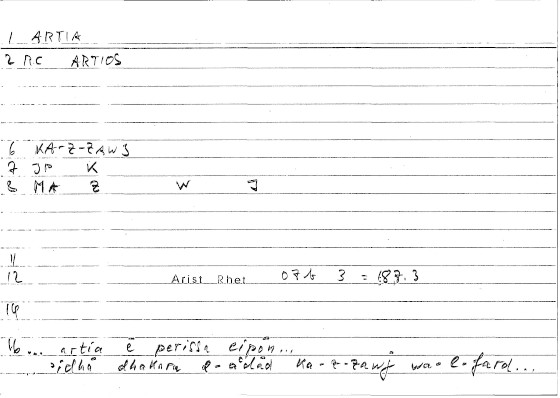 1 ARTIA
2 RC ARTIOS
6 KA-Z-ZAWJ
7 JP K
8 MA Z W J
11
12 Arist Rhet 07b 3 = 87.3
14
16 ... artia ē perissa eipōn...
ʾidhā dhakara l-aʿdād ka-z-zawǰ wa-l-fard...